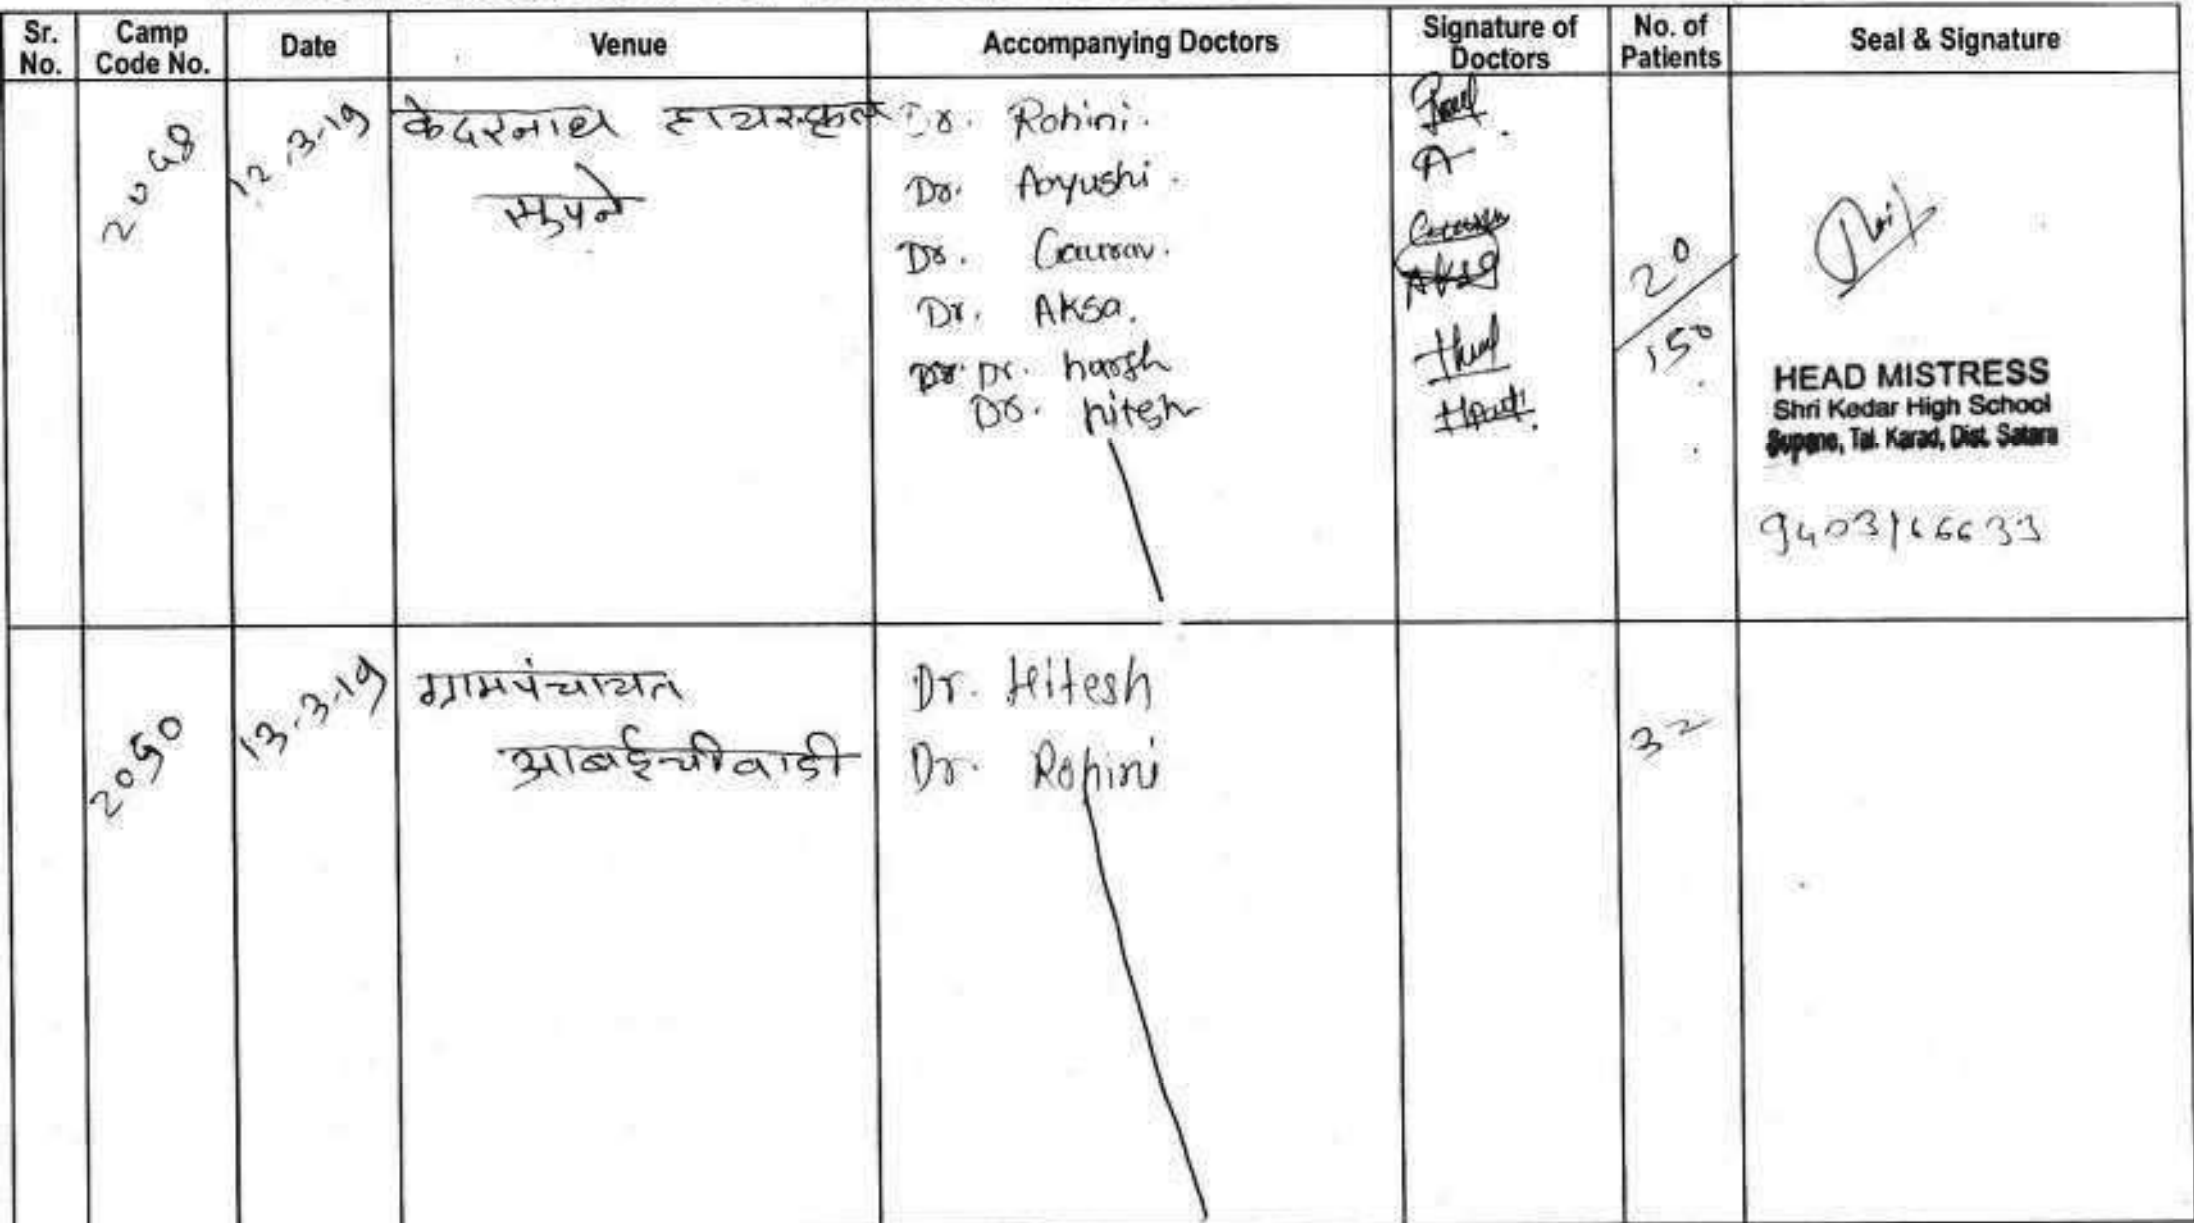 Sr. No. Camp Code No. Date Venue Accompanying Doctors Signature of Doctors No. of Patients Seal & Signature
12.3.19 केदरनाथ हायस्कूल Dr. Rohini.
सुपने Dr. Aayushi.
Dr. Gaurav.
Dr. Aksa.
Dr. harsh
Dr. hitesh
20/150
HEAD MISTRESS
Shri Kedar High School
Supane, Tal. Karad, Dist. Satara
9403166633
2050 13.3.19 ग्रामपंचायत Dr. Hitesh 32
आबईचीवाडी Dr. Rohini